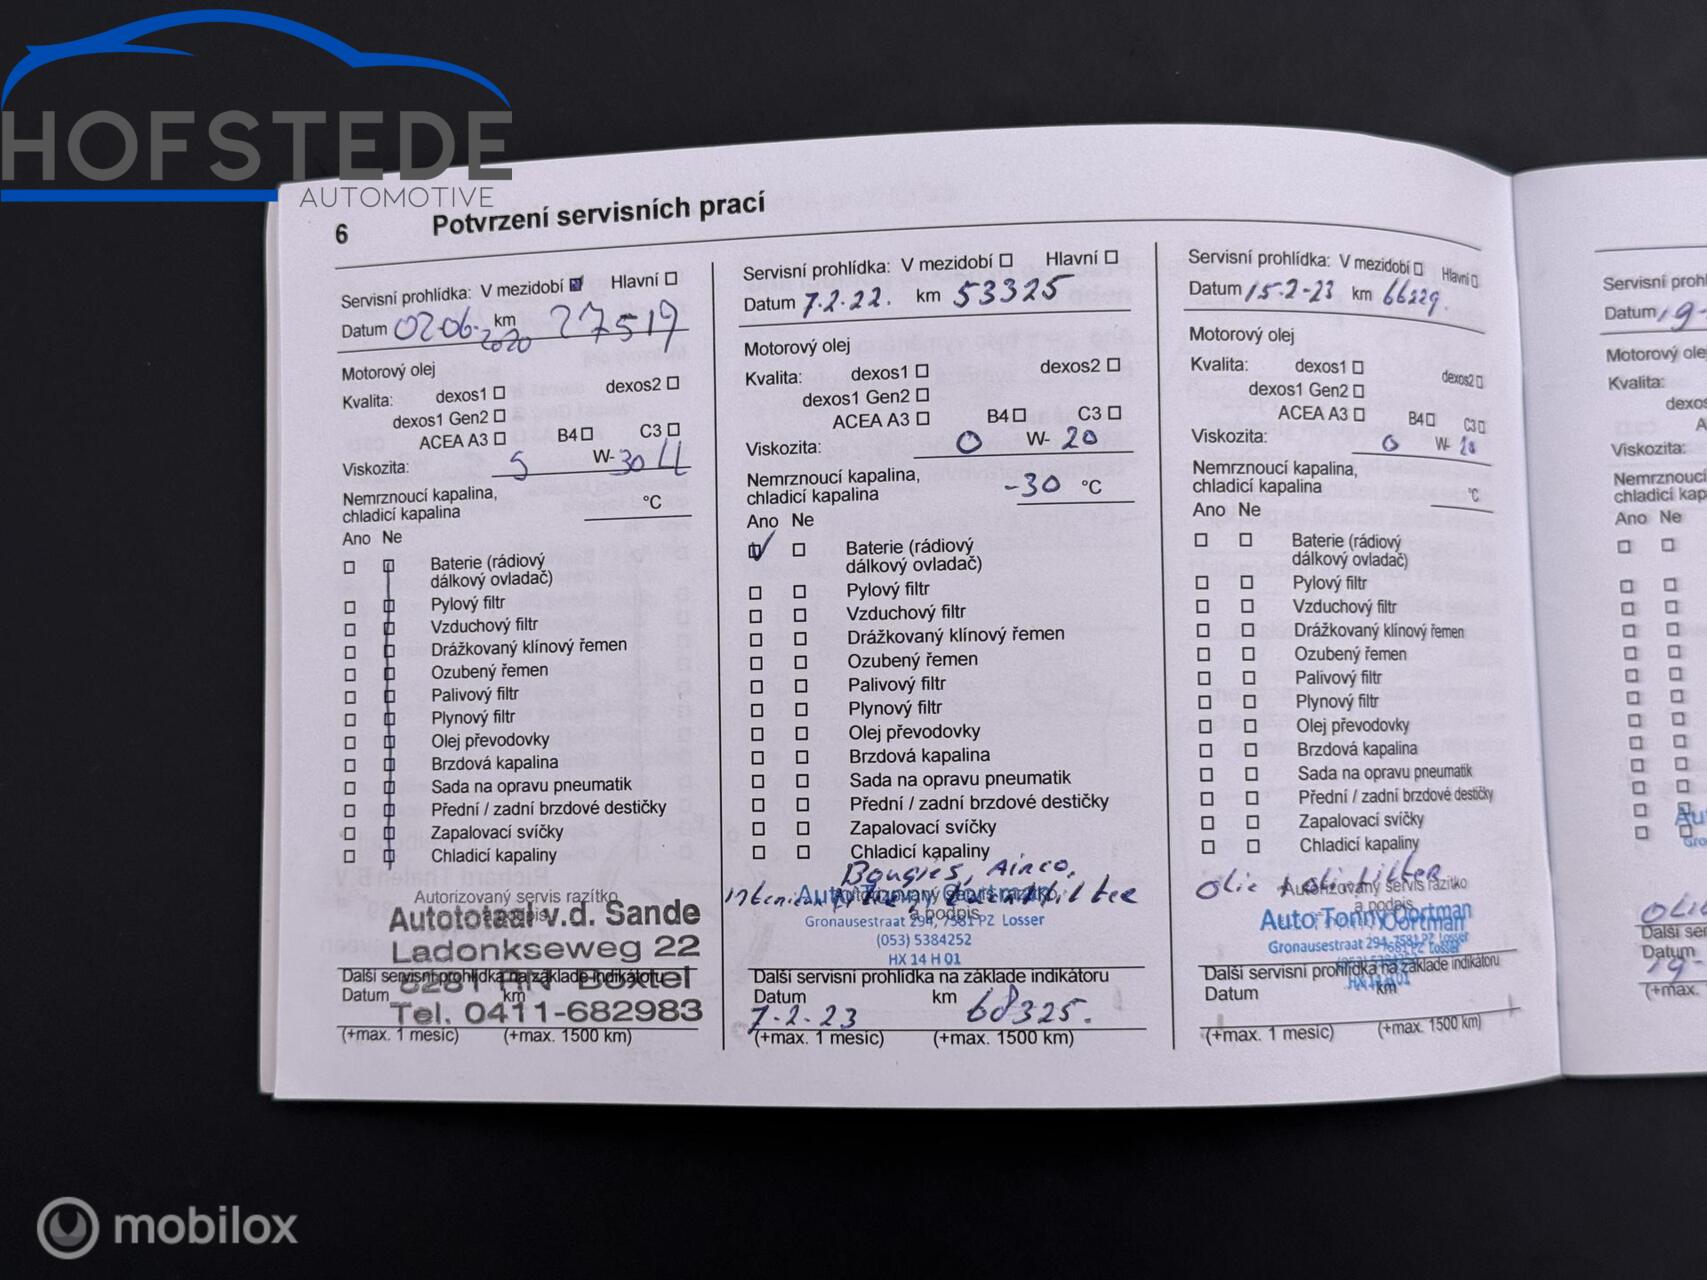 HOFSTEDE
AUTOMOTIVE
6 Potvrzení servisních prací
Servisní prohlídka: V mezidobí Hlavní
Datum 02-06-2020 km 27519
Motorový olej
Kvalita: dexos1 dexos2
dexos1 Gen2
ACEA A3 B4 C3
Viskozita: 5 W-30 4L
Nemrznoucí kapalina,
chladicí kapalina °C
Ano Ne
Baterie (rádiový
dálkový ovladač)
Pylový filtr
Vzduchový filtr
Drážkovaný klínový řemen
Ozubený řemen
Palivový filtr
Plynový filtr
Olej převodovky
Brzdová kapalina
Sada na opravu pneumatik
Přední / zadní brzdové destičky
Zapalovací svíčky
Chladicí kapaliny
Autorizovaný servis razítko
a podpis
Autototaal v.d. Sande
Ladonkseweg 22
5281 RN Boxtel
Tel. 0411-682983
Další servisní prohlídka na základe indikátoru
Datum km
(+max. 1 mesíc) (+max. 1500 km)
Servisní prohlídka: V mezidobí Hlavní
Datum 7.2.22. km 53325
Motorový olej
Kvalita: dexos1 dexos2
dexos1 Gen2
ACEA A3 B4 C3
Viskozita: 0 W-20
Nemrznoucí kapalina,
chladicí kapalina -30 °C
Ano Ne
Baterie (rádiový
dálkový ovladač)
Pylový filtr
Vzduchový filtr
Drážkovaný klínový řemen
Ozubený řemen
Palivový filtr
Plynový filtr
Olej převodovky
Brzdová kapalina
Sada na opravu pneumatik
Přední / zadní brzdové destičky
Zapalovací svíčky
Chladicí kapaliny
Bougies, Airco,
Autorizovaný servis razítko
a podpis
Auto Tonny Oortman
Gronausestraat 294, 7581 PZ Losser
(053) 5384252
HX 14 H 01
Další servisní prohlídka na základe indikátoru
Datum km
7-2-23 68325.
(+max. 1 mesíc) (+max. 1500 km)
Servisní prohlídka: V mezidobí Hlavní
Datum 15-2-23 km 66229.
Motorový olej
Kvalita: dexos1 dexos2
dexos1 Gen2
ACEA A3 B4 C3
Viskozita: 0 W-20
Nemrznoucí kapalina,
chladicí kapalina °C
Ano Ne
Baterie (rádiový
dálkový ovladač)
Pylový filtr
Vzduchový filtr
Drážkovaný klínový řemen
Ozubený řemen
Palivový filtr
Plynový filtr
Olej převodovky
Brzdová kapalina
Sada na opravu pneumatik
Přední / zadní brzdové destičky
Zapalovací svíčky
Chladicí kapaliny
Olie + oliefilter
Autorizovaný servis razítko
a podpis
Auto Tonny Oortman
Gronausestraat 294, 7581 PZ Losser
Další servisní prohlídka na základe indikátoru
Datum km
(+max. 1 mesíc) (+max. 1500 km)
Servisní prohl
Datum 19-
Motorový ole
Kvalita:
dexos
A
Viskozita:
Nemrznoucí
chladicí kap
Ano Ne
Další ser
Datum
19-
(+max.
mobilox